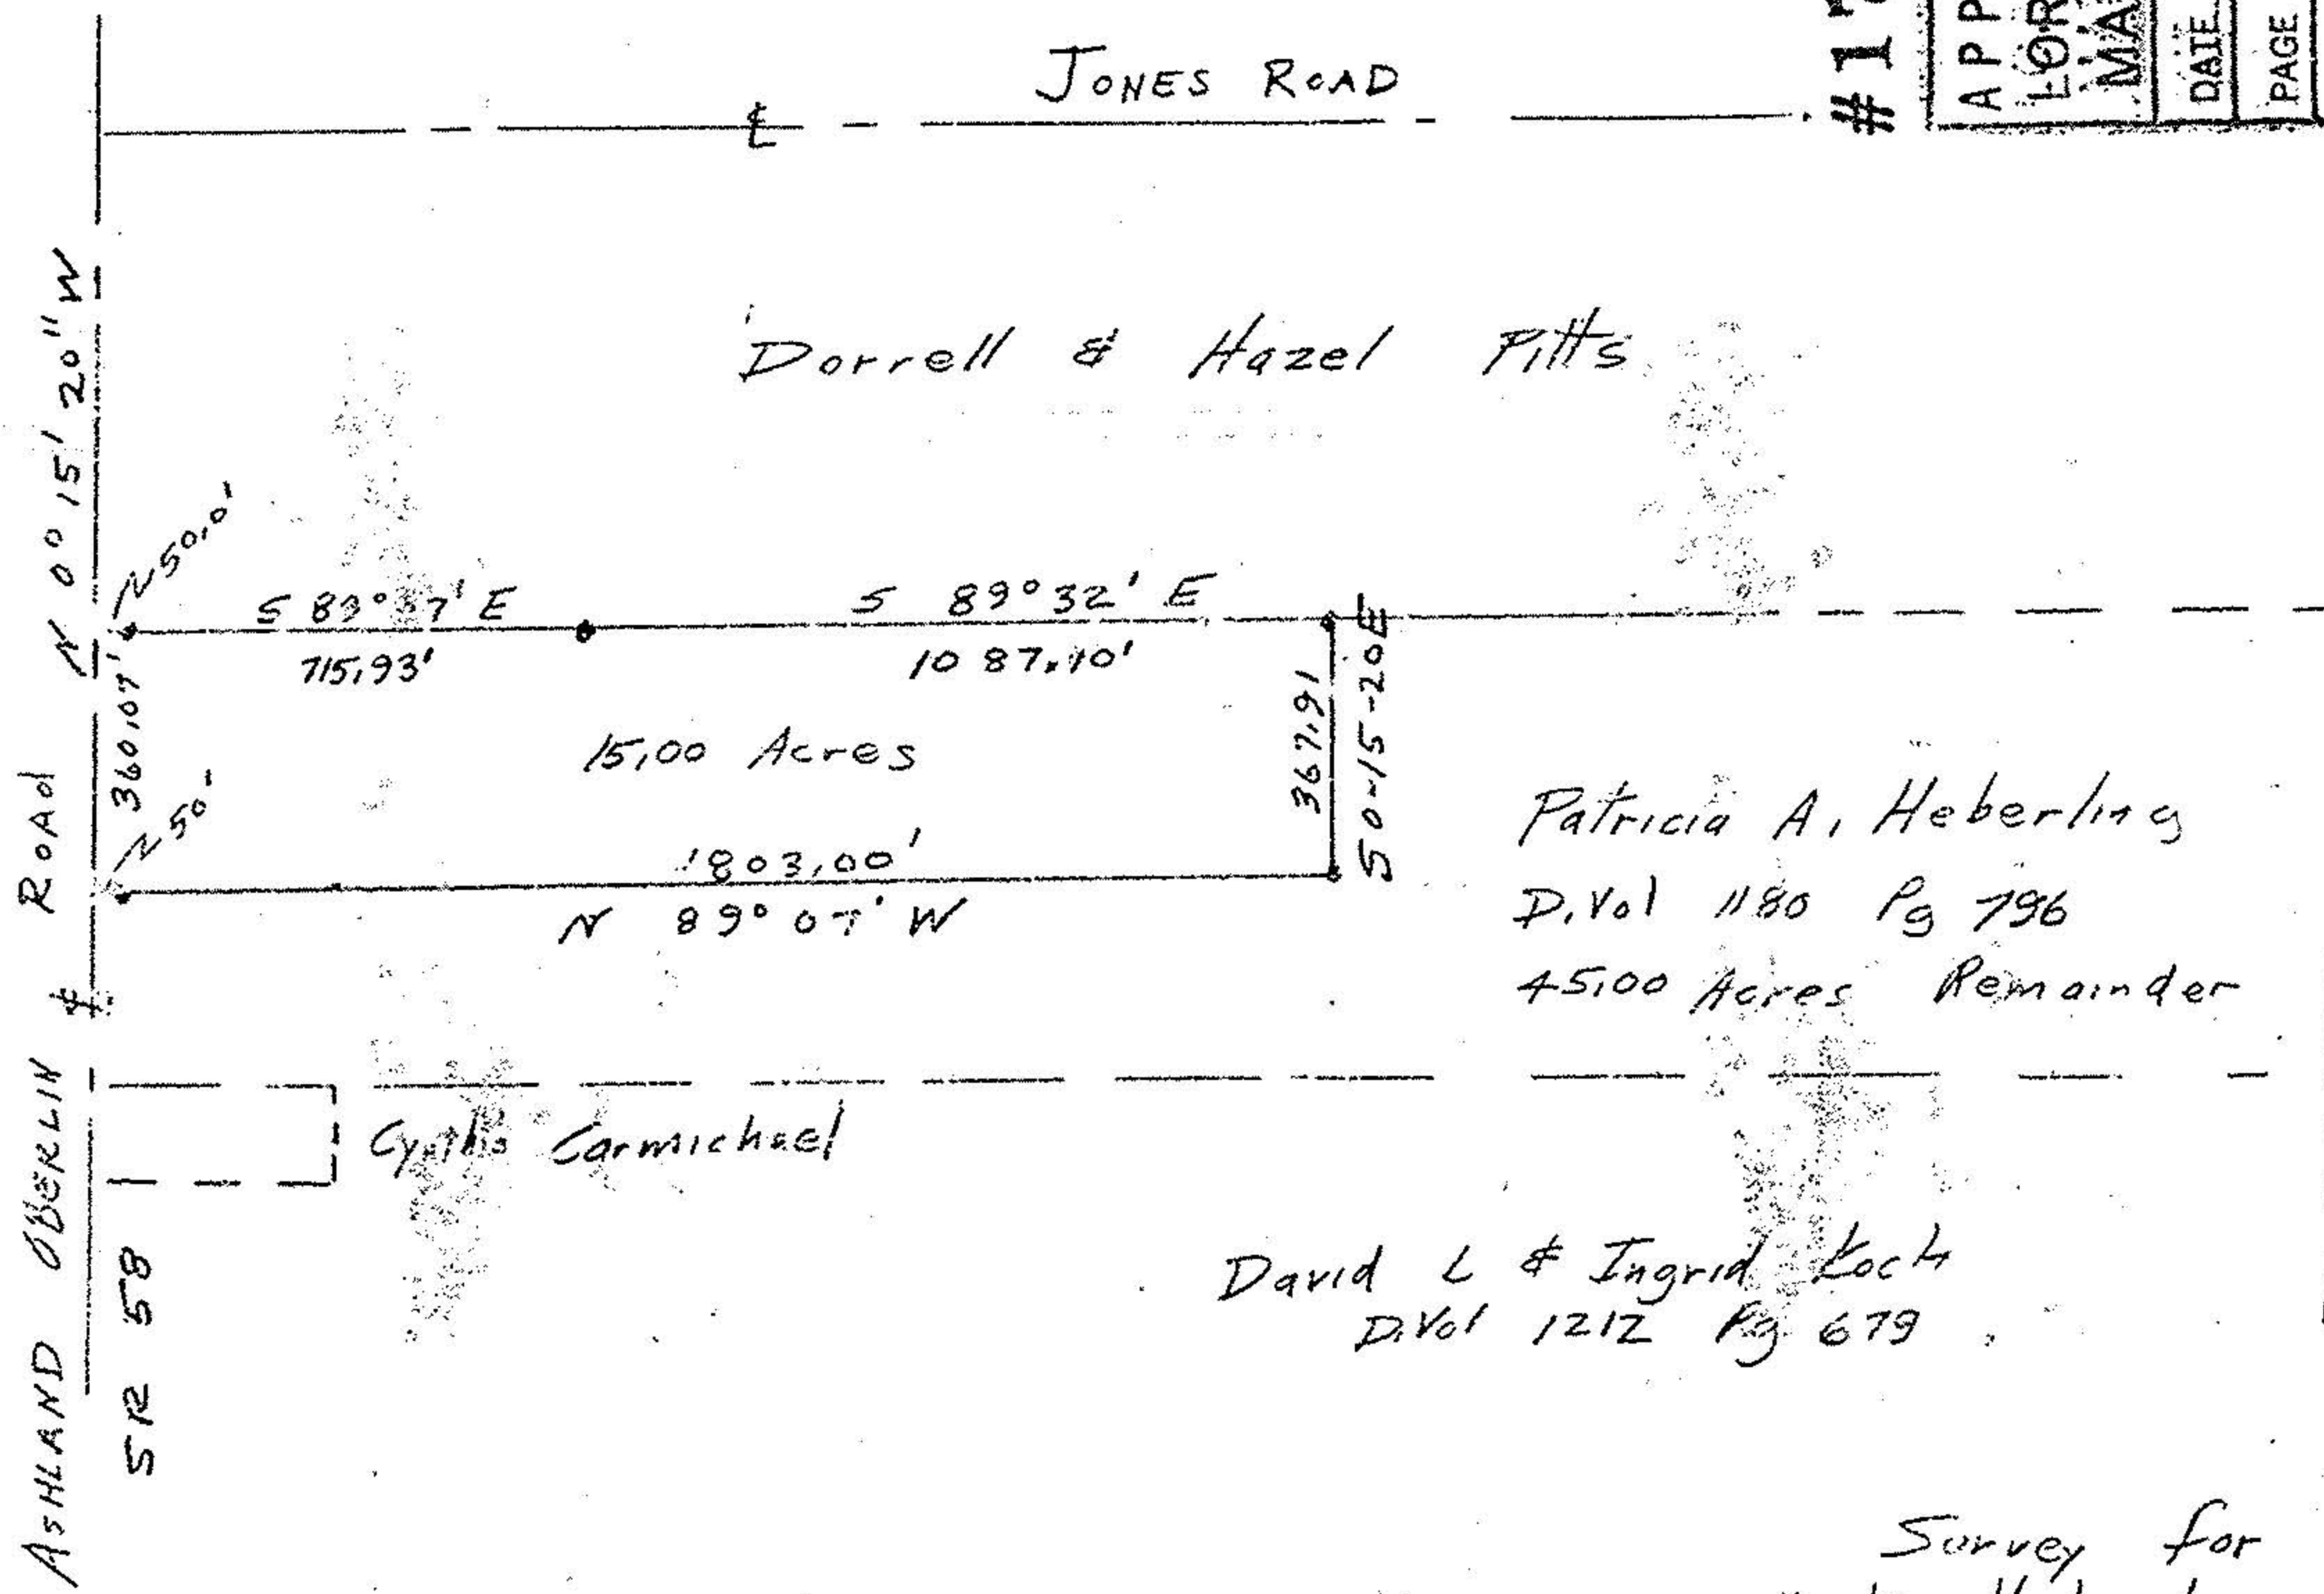 JONES ROAD
℄
#1
APP
LOR
MA
DATE
PAGE
N 0° 15' 20" W
Dorrell & Hazel Pitts
N 50.0'
S 89° 37' E
S 89° 32' E
715.93'
1087.10'
360.07'
367.91
S 0-15-20 E
15.00 Acres
N 50'
1803.00'
N 89° 07' W
Patricia A. Heberling
D.Vol 1180 Pg 796
45.00 Acres Remainder
Carmichael
ASHLAND OBERLIN ℄ ROAD
SR 58
David L & Ingrid Koch
D.Vol 1212 Pg 679
Survey for